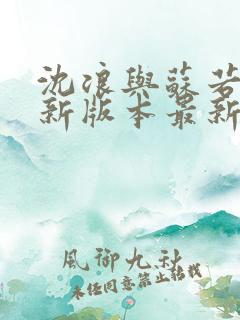 沈浪與蘇若
新版本最新
風御九秋
未經同意禁止轉載